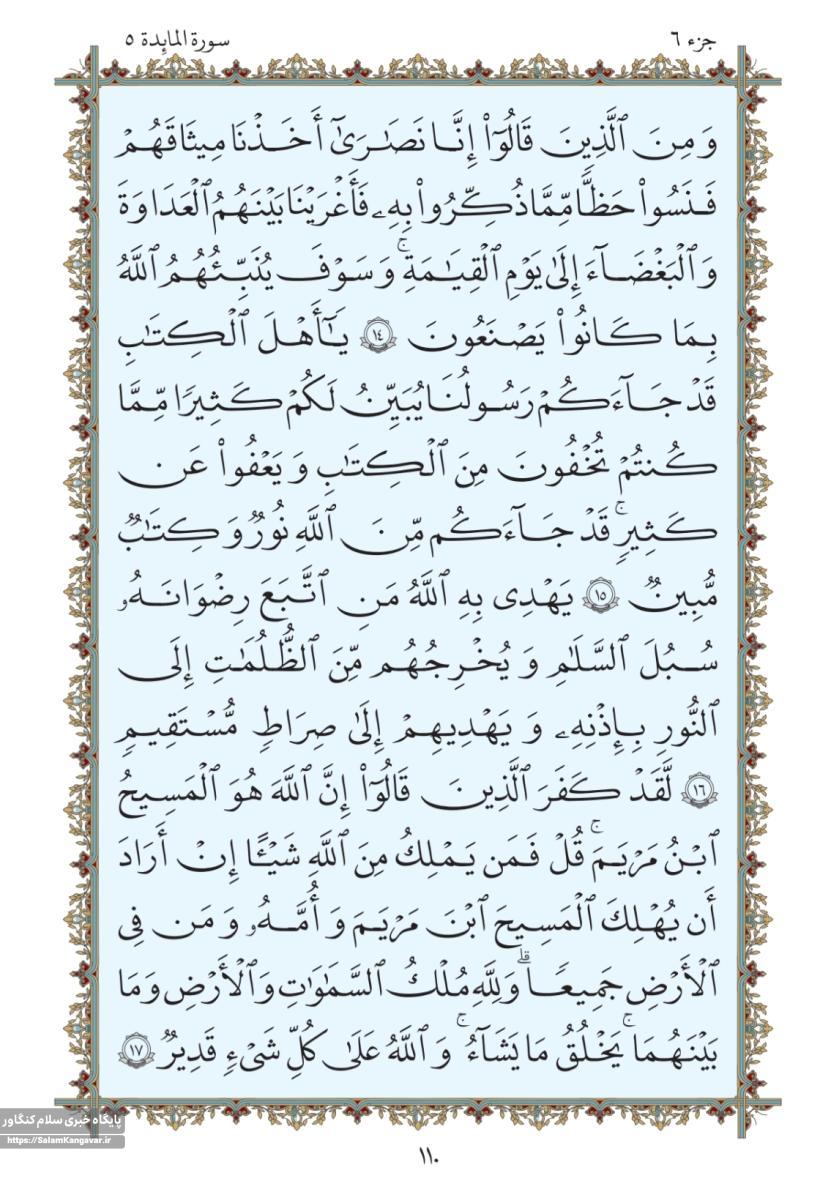 جزء ٦
سورة المائدة ٥
وَمِنَ ٱلَّذِينَ قَالُوٓا۟ إِنَّا نَصَـٰرَىٰٓ أَخَذْنَا مِيثَاقَهُمْ
فَنَسُوا۟ حَظًّا مِّمَّا ذُكِّرُوا۟ بِهِۦ فَأَغْرَيْنَا بَيْنَهُمُ ٱلْعَدَاوَةَ
وَٱلْبَغْضَآءَ إِلَىٰ يَوْمِ ٱلْقِيَـٰمَةِ ۚ وَسَوْفَ يُنَبِّئُهُمُ ٱللَّهُ
بِمَا كَانُوا۟ يَصْنَعُونَ ١٤ يَـٰٓأَهْلَ ٱلْكِتَـٰبِ
قَدْ جَآءَكُمْ رَسُولُنَا يُبَيِّنُ لَكُمْ كَثِيرًا مِّمَّا
كُنتُمْ تُخْفُونَ مِنَ ٱلْكِتَـٰبِ وَيَعْفُوا۟ عَن
كَثِيرٍ ۚ قَدْ جَآءَكُم مِّنَ ٱللَّهِ نُورٌ وَكِتَـٰبٌ
مُّبِينٌ ١٥ يَهْدِى بِهِ ٱللَّهُ مَنِ ٱتَّبَعَ رِضْوَانَهُۥ
سُبُلَ ٱلسَّلَـٰمِ وَيُخْرِجُهُم مِّنَ ٱلظُّلُمَـٰتِ إِلَى
ٱلنُّورِ بِإِذْنِهِۦ وَيَهْدِيهِمْ إِلَىٰ صِرَاطٍ مُّسْتَقِيمٍ
١٦ لَّقَدْ كَفَرَ ٱلَّذِينَ قَالُوٓا۟ إِنَّ ٱللَّهَ هُوَ ٱلْمَسِيحُ
ٱبْنُ مَرْيَمَ ۚ قُلْ فَمَن يَمْلِكُ مِنَ ٱللَّهِ شَيْـًٔا إِنْ أَرَادَ
أَن يُهْلِكَ ٱلْمَسِيحَ ٱبْنَ مَرْيَمَ وَأُمَّهُۥ وَمَن فِى
ٱلْأَرْضِ جَمِيعًا ۗ وَلِلَّهِ مُلْكُ ٱلسَّمَـٰوَٰتِ وَٱلْأَرْضِ وَمَا
بَيْنَهُمَا ۚ يَخْلُقُ مَا يَشَآءُ ۚ وَٱللَّهُ عَلَىٰ كُلِّ شَىْءٍ قَدِيرٌ ١٧
پایگاه خبری سلام کنگاور
https://SalamKangavar.ir
١١٠